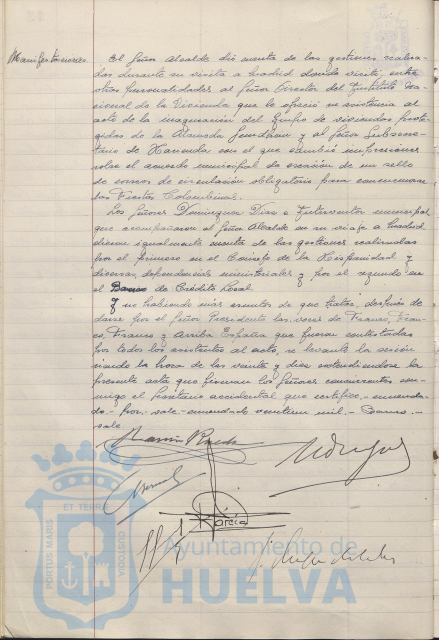 Manifestaciones
El Señor Alcalde dió cuenta de las gestiones realiza-
das durante su visita a Madrid donde visitó, entre
otras personalidades al Señor Director del Instituto Na-
cional de la Vivienda que le ofreció su asistencia al
acto de la inauguración del Grupo de viviendas prote-
gidas de la Alameda Sundheim y al Señor Subsecre-
tario de Hacienda con el que cambió impresiones
sobre el acuerdo municipal de creación de un sello
de correos de circulación obligatoria para conmemorar
las Fiestas Colombinas.
Los Señores Dominguez Diaz e Interventor municipal
que acompañaron al Señor Alcalde en su viaje a Madrid
dieron igualmente cuenta de las gestiones realizadas
por el primero en el Consejo de la Hispanidad y
diversas dependencias ministeriales y por el segundo en
el Banco de Crédito Local.
Y no habiendo más asuntos de que tratar, después de
darse por el Señor Presidente las voces de Franco, Fran-
co, Franco y Arriba España que fueron contestadas
por todos los asistentes al acto, se levantó la sesión
siendo la hora de las veinte y diez extendiéndose la
presente acta que firman los Señores concurrentes con-
migo el Secretario accidental que certifico.- enmenda-
do- por- vale- enmendado veintiun mil.- Banco.-
vale
García
PORTUS MARIS
ET TERRAE
CUSTODIA
Ayuntamiento de
HUELVA